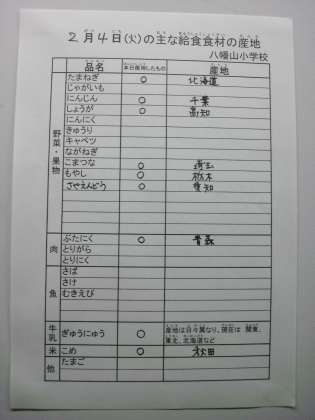 2月4日(火)の主な給食食材の産地
八幡山小学校
品名 本日使用したもの 産地
野菜・果物
たまねぎ ○ 北海道
じゃがいも
にんじん ○ 千葉
しょうが ○ 高知
にんにく
きゅうり
キャベツ
ながねぎ
こまつな ○ 埼玉
もやし ○ 栃木
さやえんどう ○ 愛知
肉
ぶたにく ○ 青森
とりがら
とりにく
魚
さば
さけ
むきえび
牛乳
ぎゅうにゅう ○ 産地は日々異なり、現在は 関東、
東北、北海道など
米 こめ ○ 秋田
他 たまご